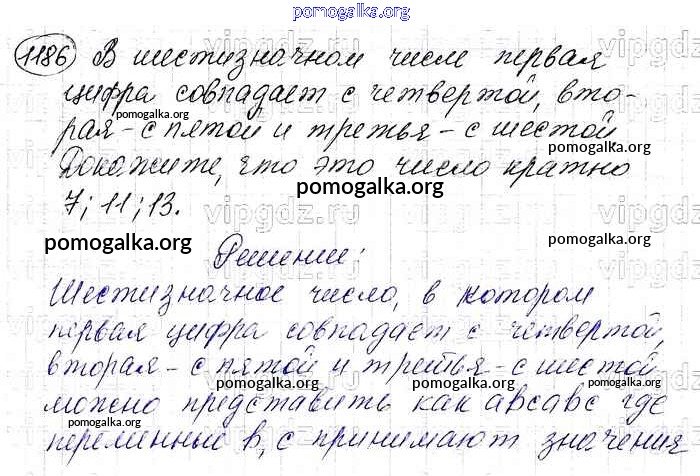 pomogalka.org
1186 В шестизначном числе первая
цифра совпадает с четвертой, вто-
рая - с пятой и третья - с шестой
Докажите, что это число кратно
pomogalka.org
7; 11; 13.
pomogalka.org
pomogalka.org
Решение:
Шестизначное число, в котором
первая цифра совпадает с четвертой,
вторая - с пятой и третья - с шестой
pomogalka.org
pomogalka.org
можно представить как авсавс где
pomogalka.org
pomogalka.org
переменные в, с принимают значения